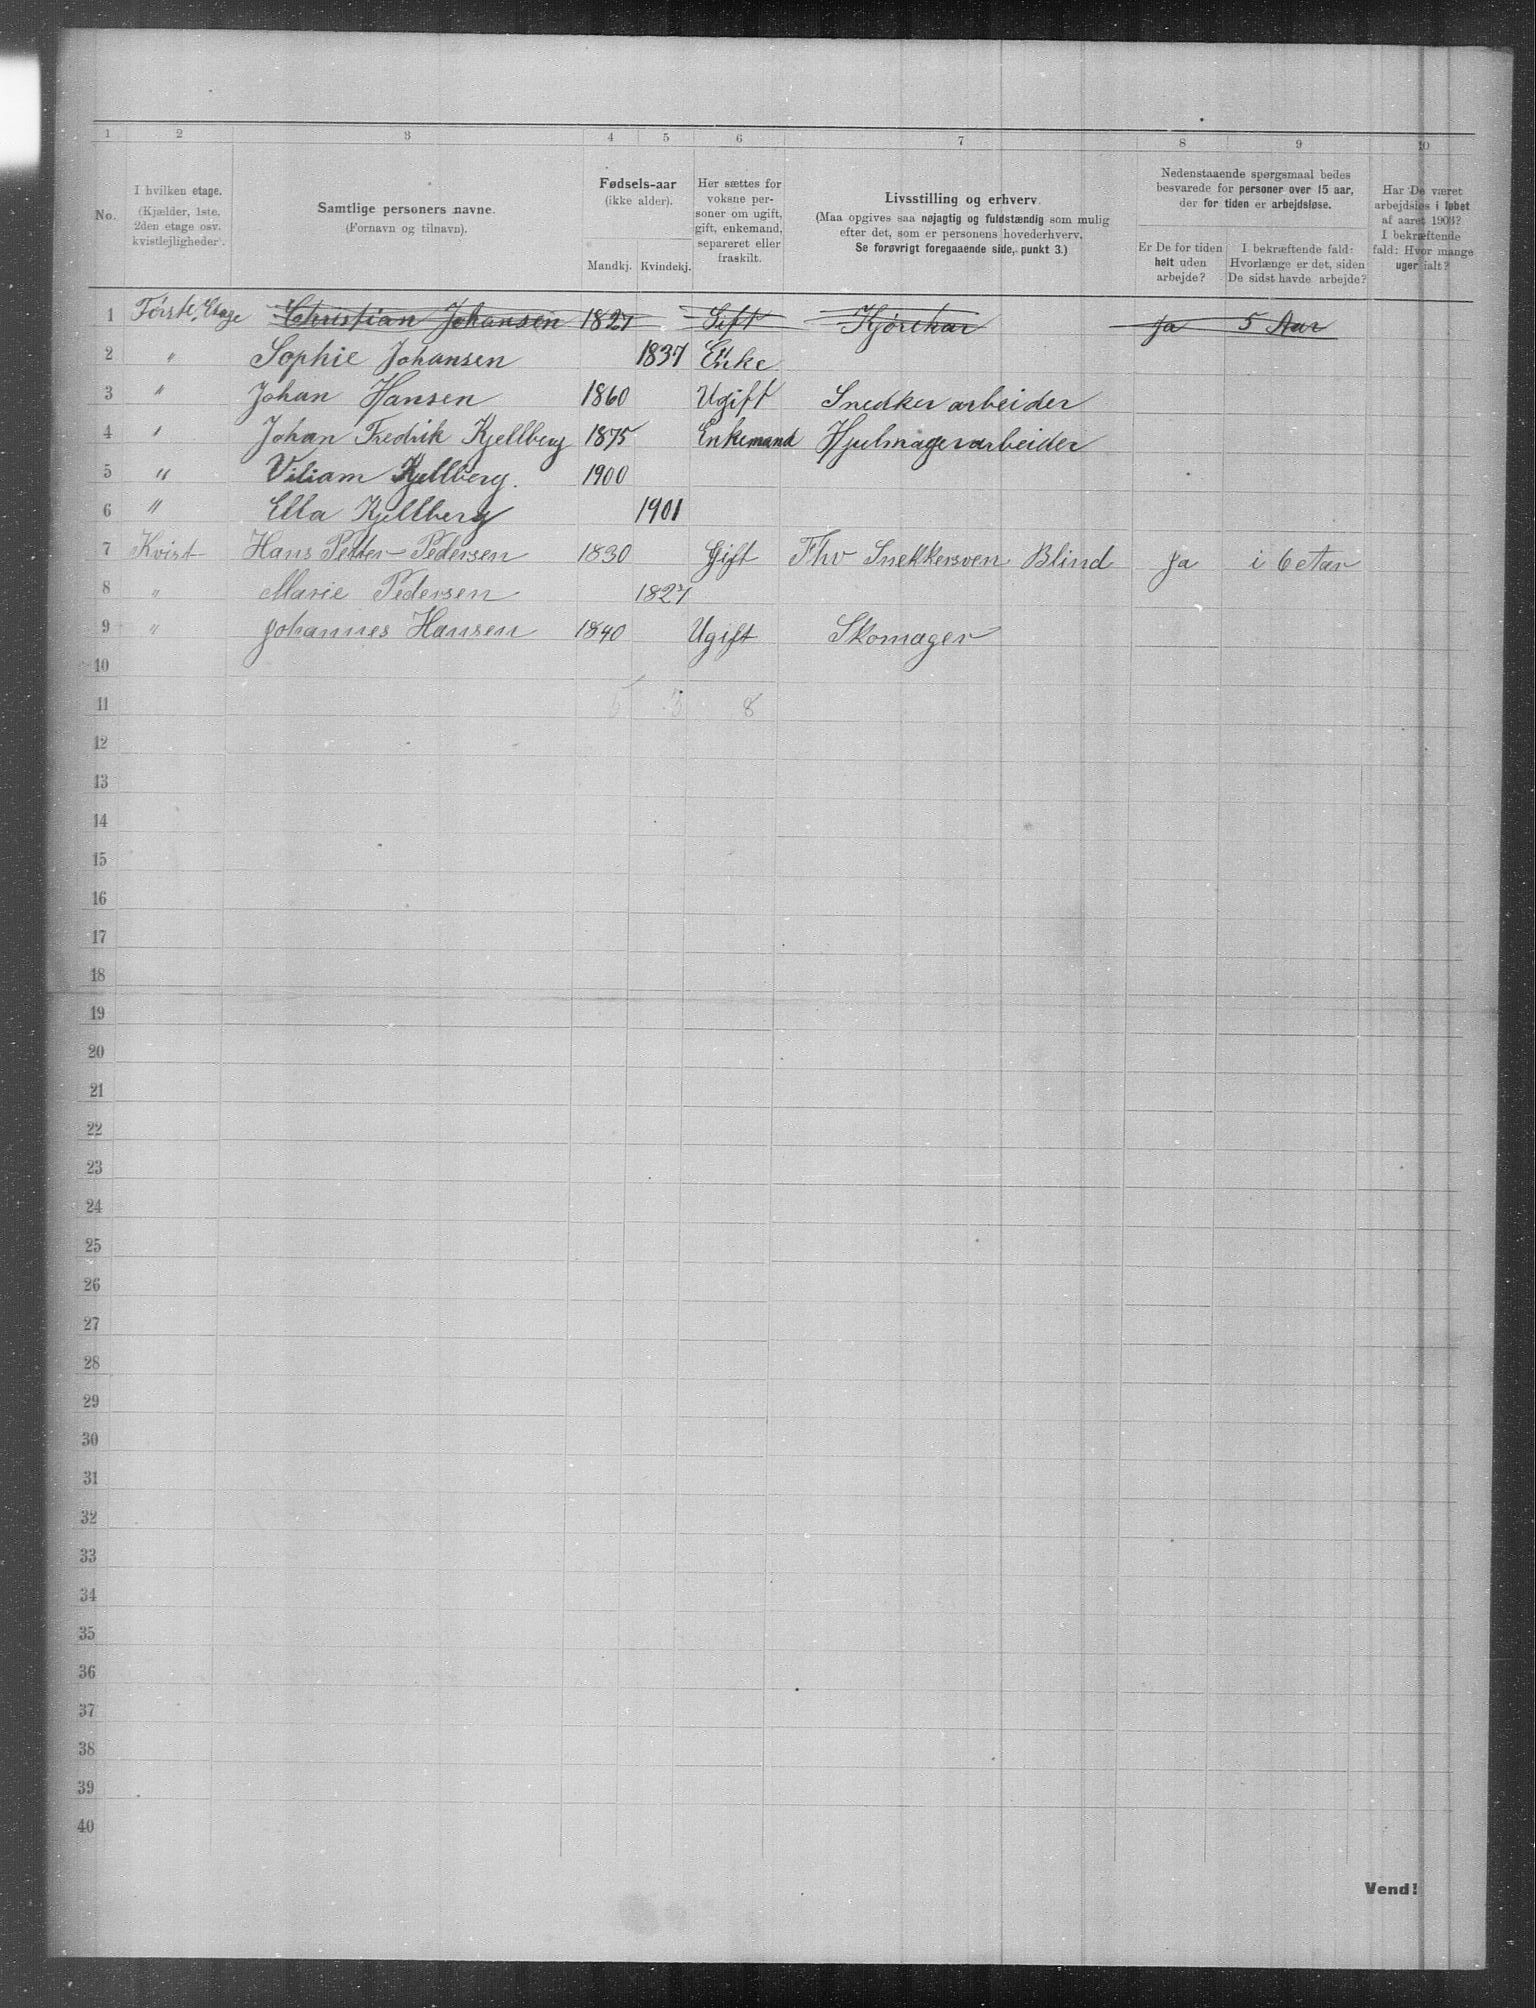 1 2 3 4 5 6 7 8 9 10
No.
I hvilken etage.
(Kjælder, 1ste,
2den etage osv.
kvistlejligheder).
Samtlige personers navne.
(Fornavn og tilnavn).
Fødsels-aar
(ikke alder).
Mandkj. Kvindekj.
Her sættes for
voksne per-
soner om ugift,
gift, enkemand,
separeret eller
fraskilt.
Livsstilling og erhverv.
(Maa opgives saa nøjagtig og fuldstændig som mulig
efter det, som er personens hovederhverv.
Se forøvrigt foregaaende side, punkt 3.)
Nedenstaaende spørgsmaal bedes
besvarede for personer over 15 aar,
der for tiden er arbejdsløse.
Er De for tiden
helt uden
arbejde?
I bekræftende fald:
Hvorlænge er det, siden
De sidst havde arbejde?
Har De været
arbejdsløs i løbet
af aaret 1903?
I bekræftende
fald: Hvor mange
uger ialt?
1 Første Etage Christian Johansen 1827 Gift ja 5 Aar
2 " Sophie Johansen 1837 Enke
3 " Johan Hansen 1860 Ugift Snedker arbeider
4 " Johan Fredrik Kjellberg 1875 Enkemand Hjulmagerarbeider
5 " Viliam Kjellberg. 1900
6 " Ella Kjellberg 1901
7 Kvist Hans Petter Pedersen 1830 Gift Fhv Snekkersven Blind Ja i 6 Aar
8 " Marie Pedersen 1827
9 " Johannes Hansen 1840 Ugift Skomager
10
11 5 3 8
12
13
14
15
16
17
18
19
20
21
22
23
24
25
26
27
28
29
30
31
32
33
34
35
36
37
38
39
40
Vend!